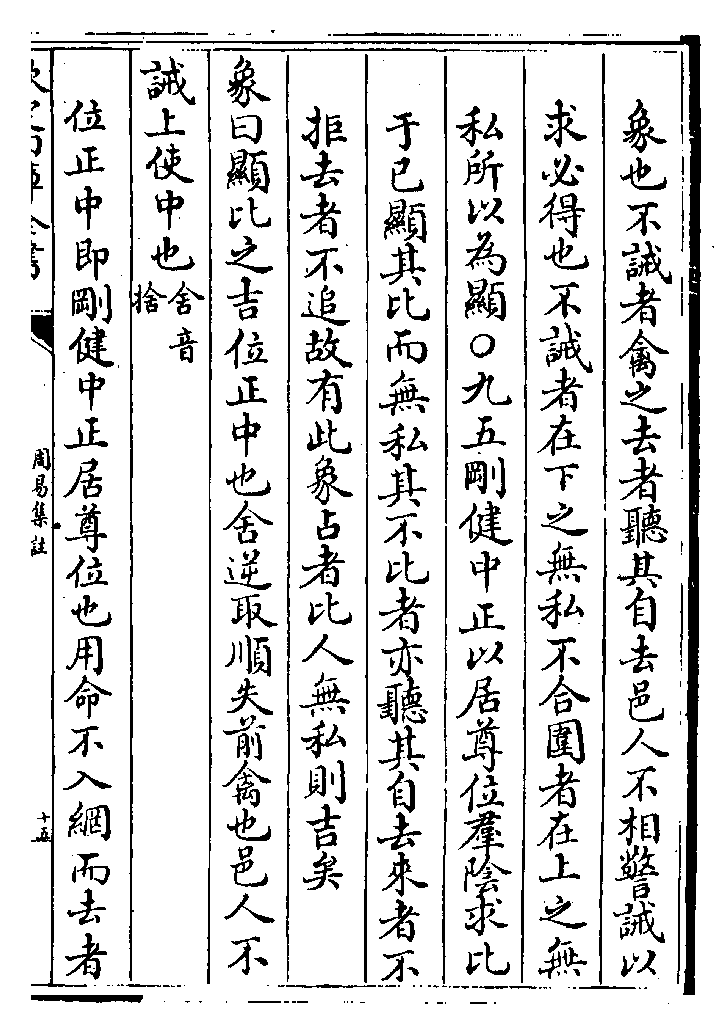 象也不誡者禽之去者聽其自去邑人不相警誡以
求必得也不誡者在下之無私不合圍者在上之無
私所以為顯○九五剛健中正以居尊位羣陰求比
于已顯其比而無私其不比者亦聽其自去來者不
拒去者不追故有此象占者比人無私則吉矣
象曰顯比之吉位正中也舍逆取順失前禽也邑人不
誡上使中也舍音
捨
位正中即剛健中正居尊位也用命不入網而去者
欽定四庫全書
周易集註
十五